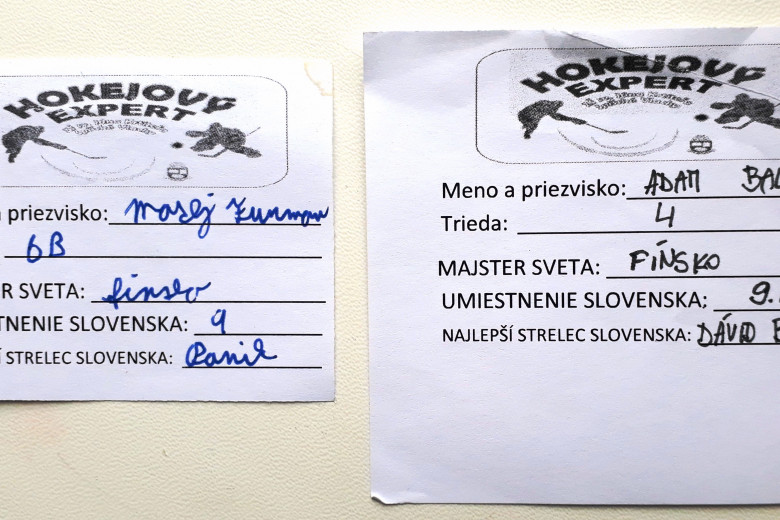 HOKEJOVÝ
EXPERT
priezvisko:
6B
R SVETA: finsko
TNENIE SLOVENSKA: 9
STRELEC SLOVENSKA: Panik
HOKEJOVÝ
EXPERT
Meno a priezvisko: ADAM BAL
Trieda: 4
MAJSTER SVETA: FÍNSKO
UMIESTNENIE SLOVENSKA; 9.
NAJLEPŠÍ STRELEC SLOVENSKA: DÁVID